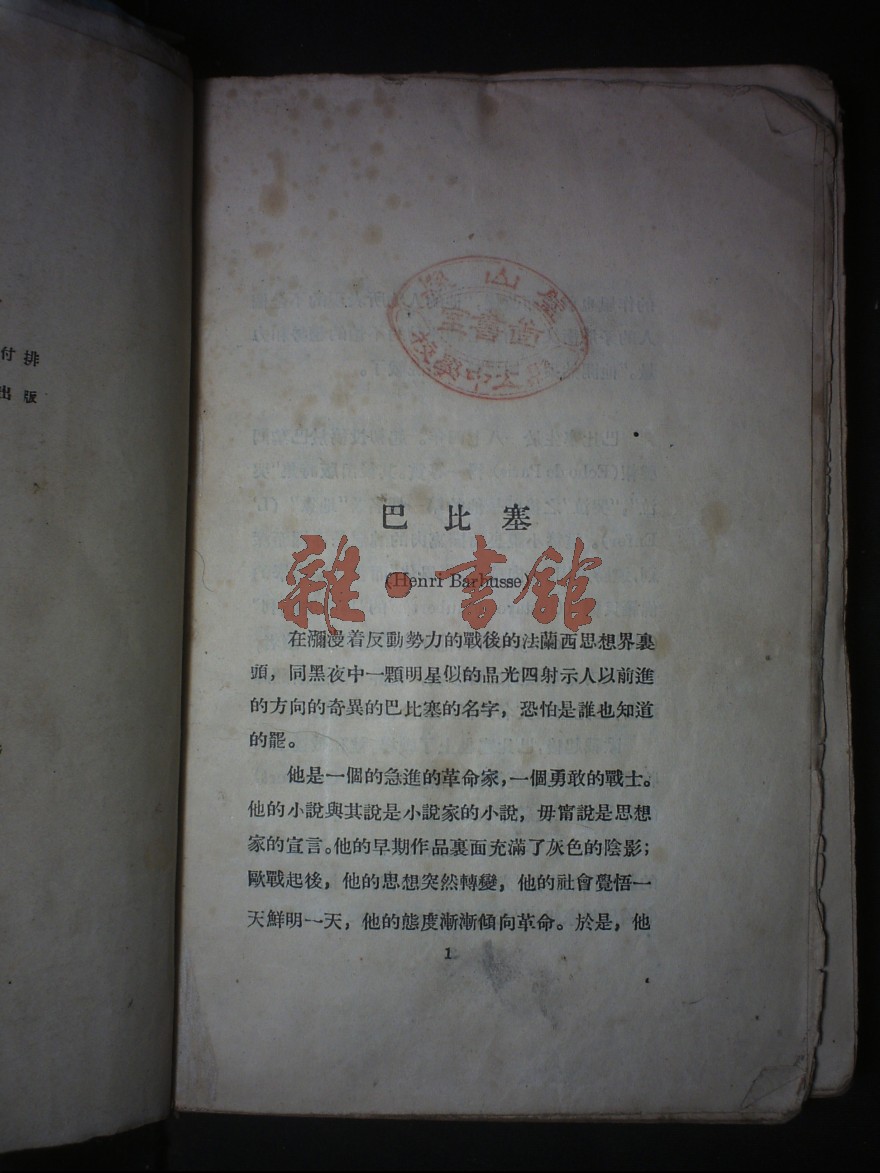 付排
出版
巴比塞
(Henri Barbusse)
雜·書館
在瀰漫着反動勢力的戰後的法蘭西思想界裏
頭，同黑夜中一顆明星似的晶光四射示人以前進
的方向的奇異的巴比塞的名字，恐怕是誰也知道
的罷。
他是一個的急進的革命家，一個勇敢的戰士。
他的小說與其說是小說家的小說，毋甯說是思想
家的宣言。他的早期作品裏面充滿了灰色的陰影；
歐戰起後，他的思想突然轉變，他的社會覺悟一
天鮮明一天，他的態度漸漸傾向革命。於是，他
1